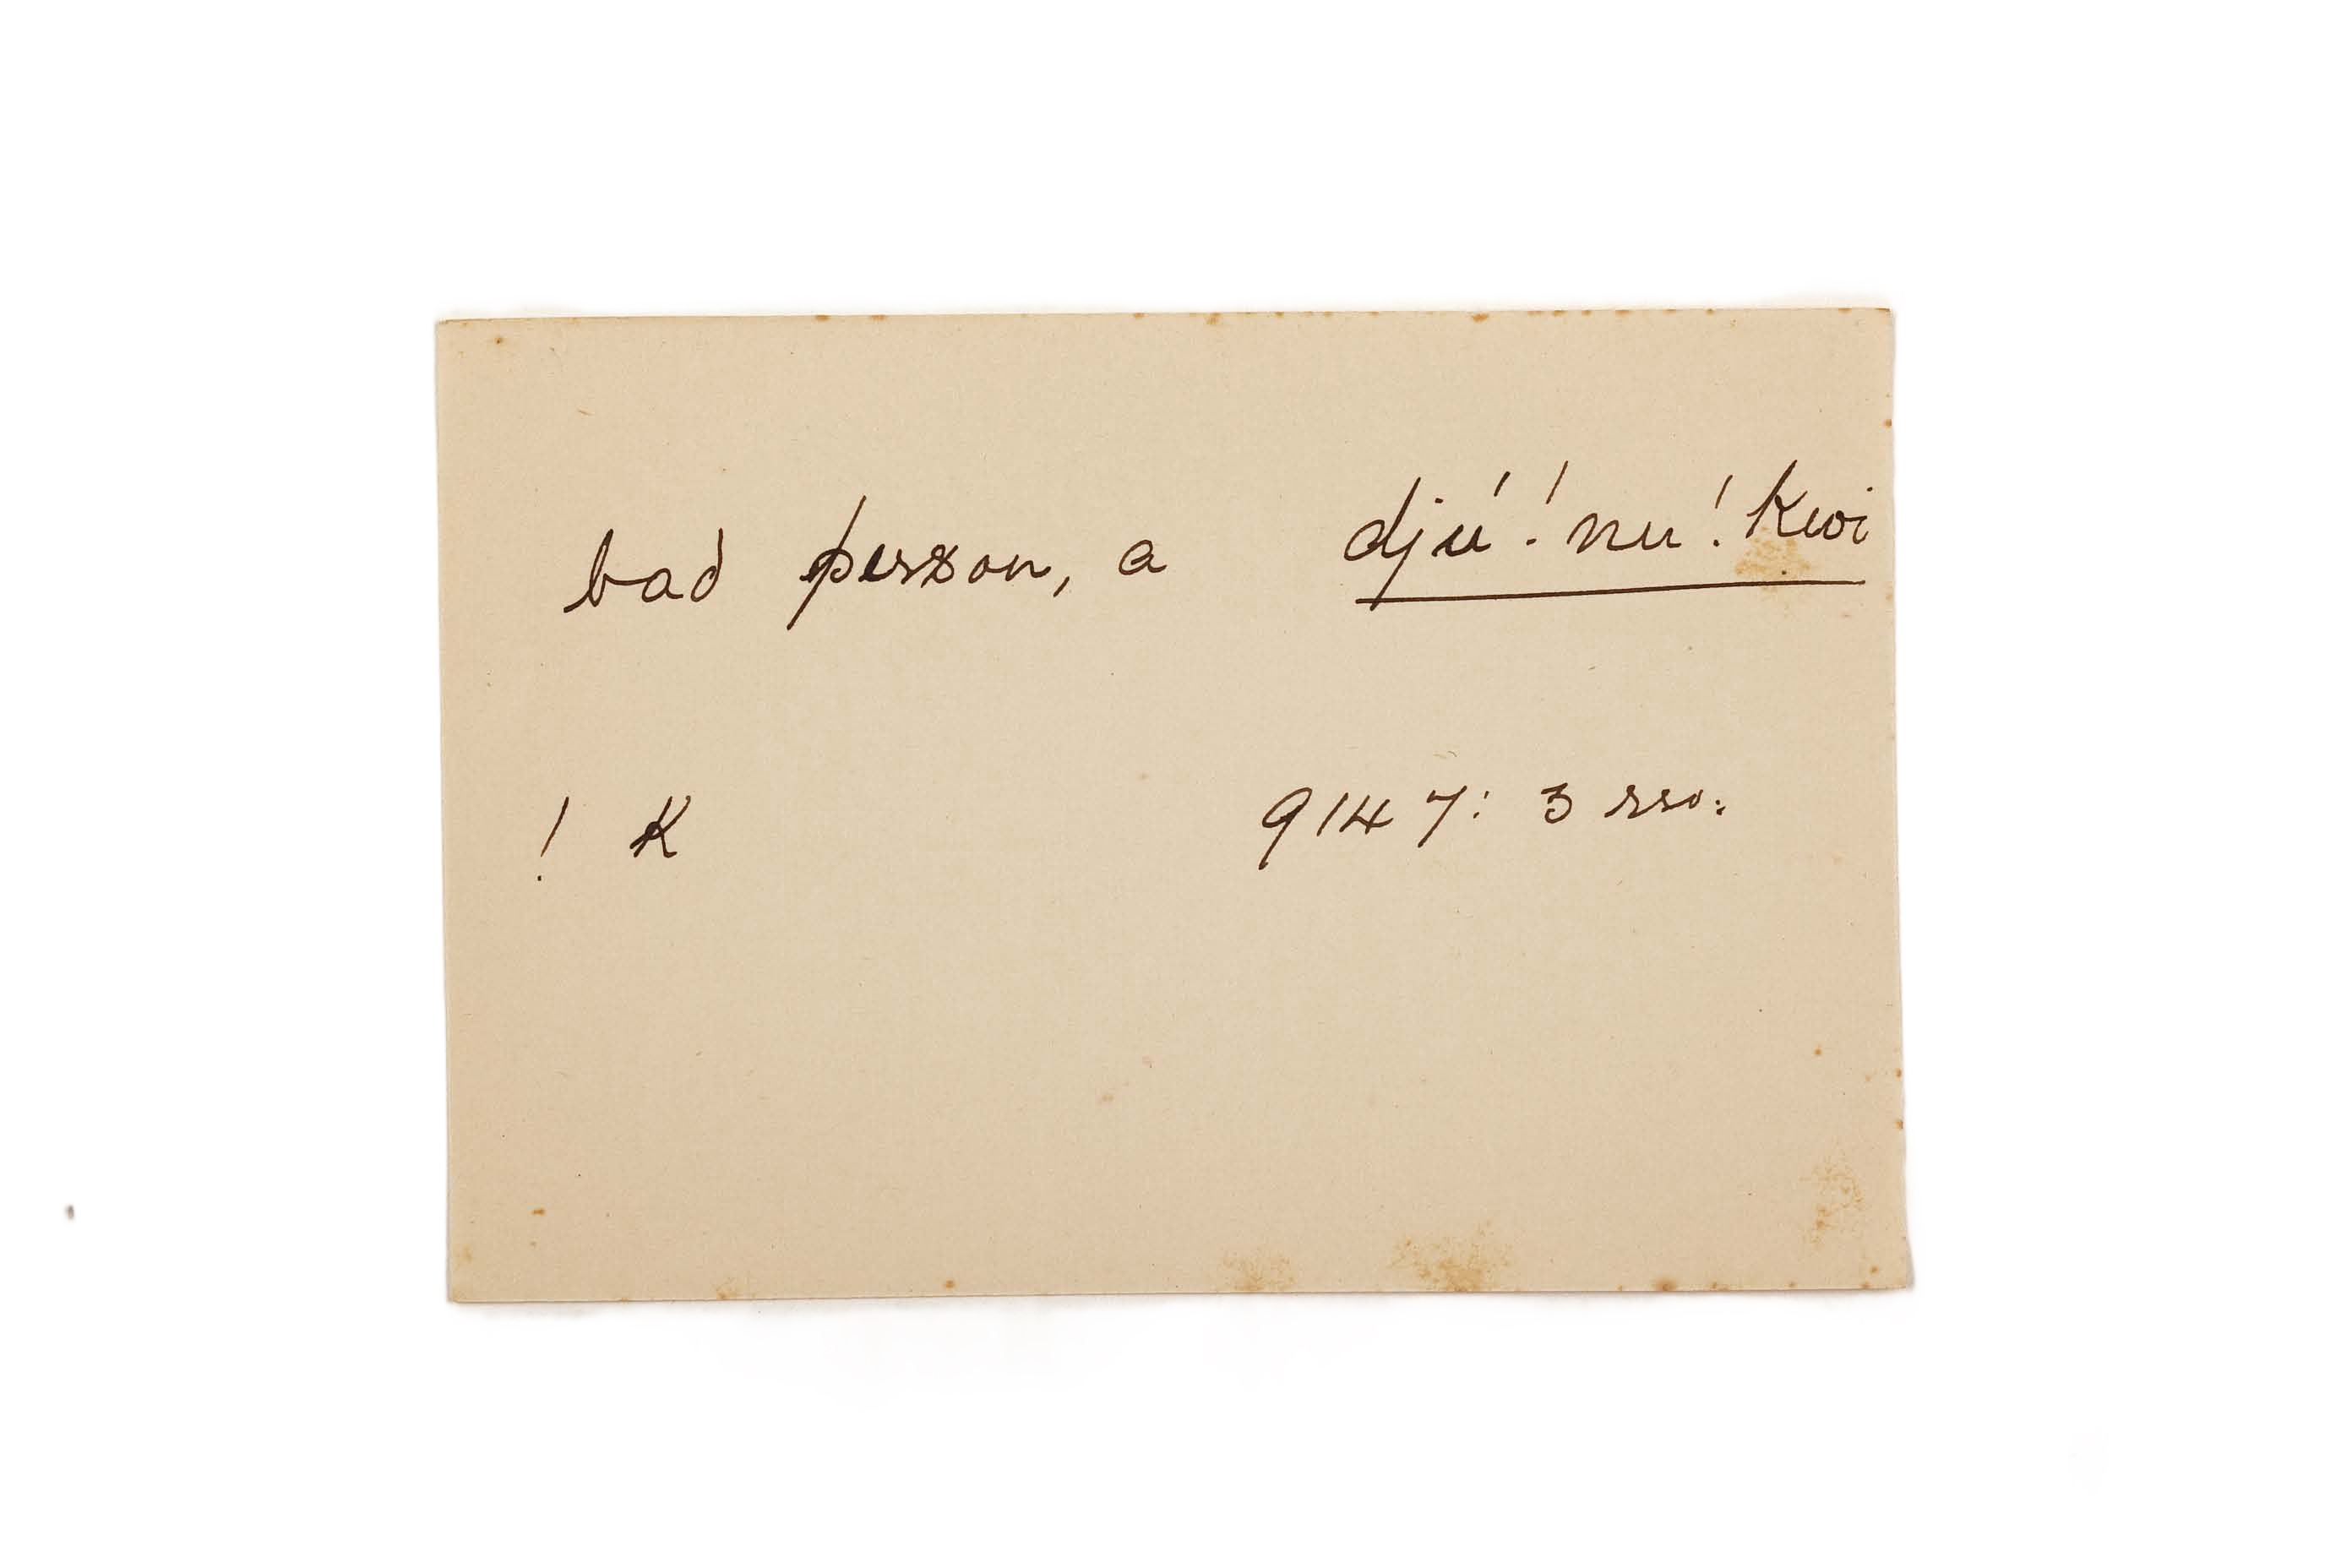 bad person, a djú ! nu ! kwi
! K 9147: 3 rso: